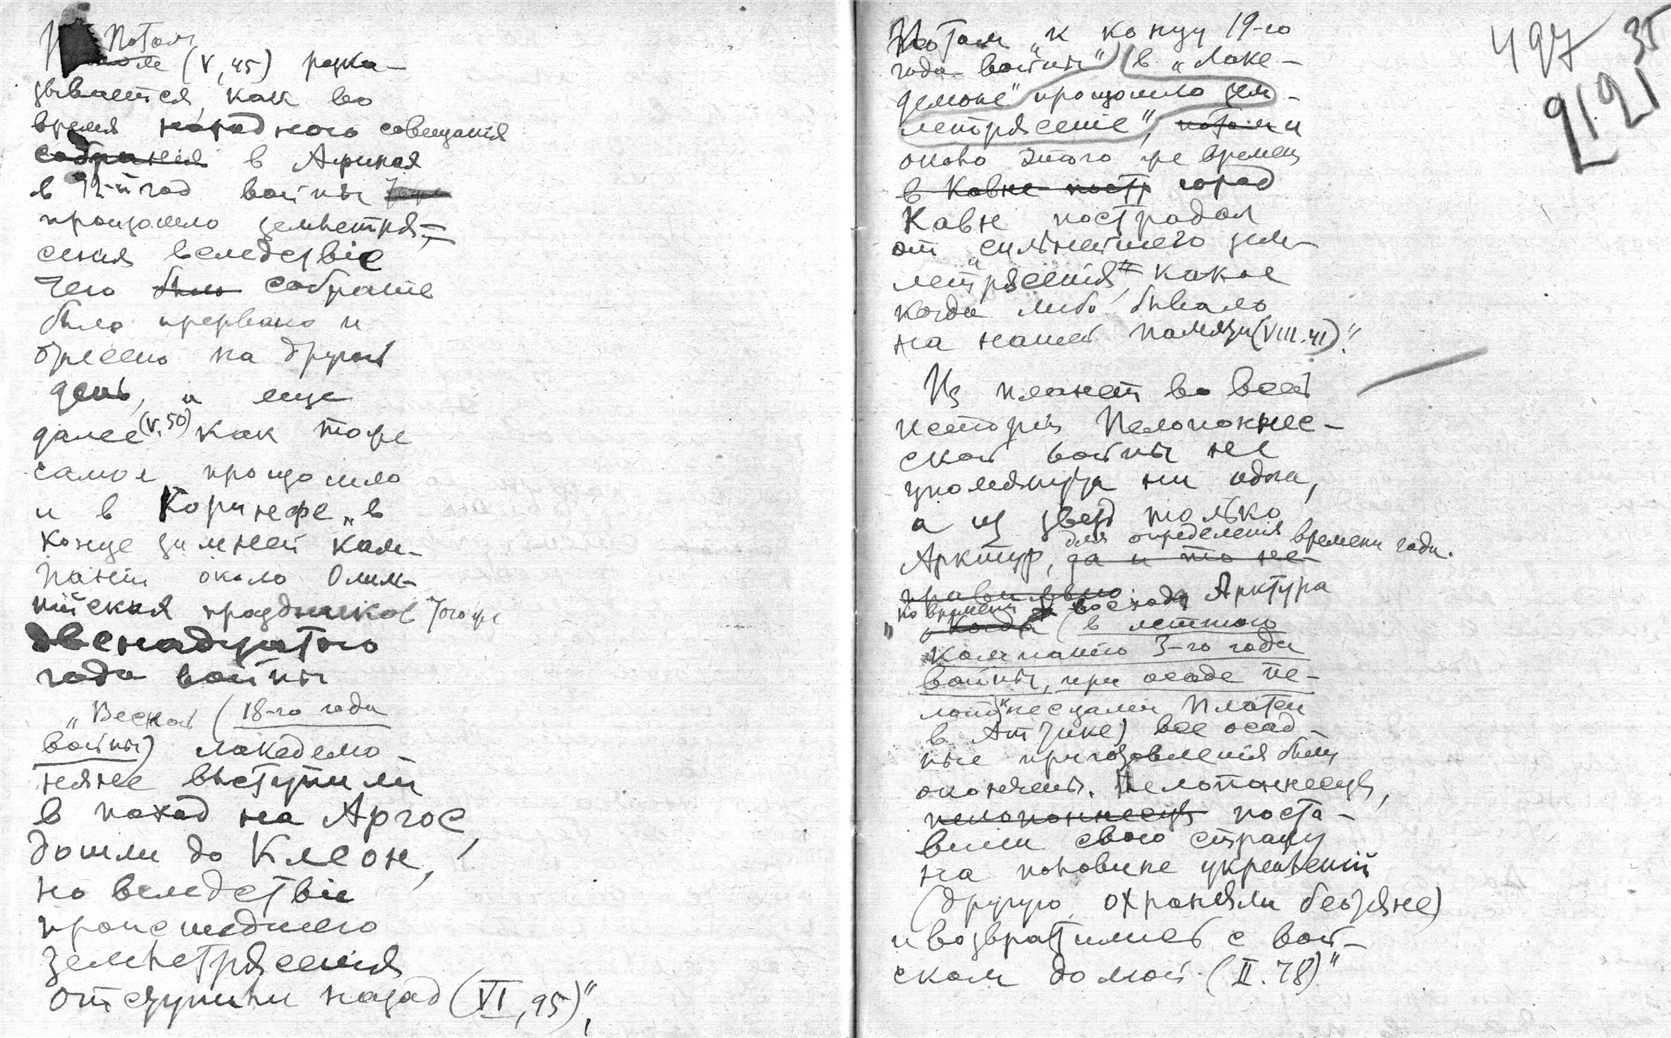 Потом
(V, 45) расска-
зывается, как во
время народного совещания
собрания в Афинах
в 12-й год войны
произошло землетря-
сения вследствіе
чего было собрание
было прервано и
на другой
день, и еще
далее (V, 50) как тоже
самое произошло
и в Коринфе „в
конце зимней кам-
пании около Олим-
пийских праздников того же
двенадцатого
года войны
„Весной (18-го года
войны) лакедемо-
няне выступили
в поход на Аргос,
дошли до Клеон,
но вследствіе
происшедшего
землетрясения
отступили назад (VI, 95)",
497 35
2121
Потом „к концу 19-го
года войны" в „Лаке-
демоне" произошло зем-
летрясеніе", потом и
около этого же времени
в Кавне постр город
Кавн пострадал
от „сильнейшего зем-
летрясенія", какое
когда либо бывало
на нашей памяти (VIII. 41)."
Из планет во всей
исторіи Пелопоннес-
ской войны не
упомянута ни одна,
а из звезд только
для определения времени года.
Арктур, да и то не-
правильно:
„ко времени восхода Арктура
„когда (в летнюю
кампанию 3-го года
войны, при осаде пе-
лопонесцами Платеи
в Аттике) все осад-
ные приготовления были
окончены. Пелопоннесцы,
пелопоннесцы поста-
вили свою стражу
на половине укреплений
(другую охраняли беотяне)
и возвратились с вой-
ском домой. (II. 78)"